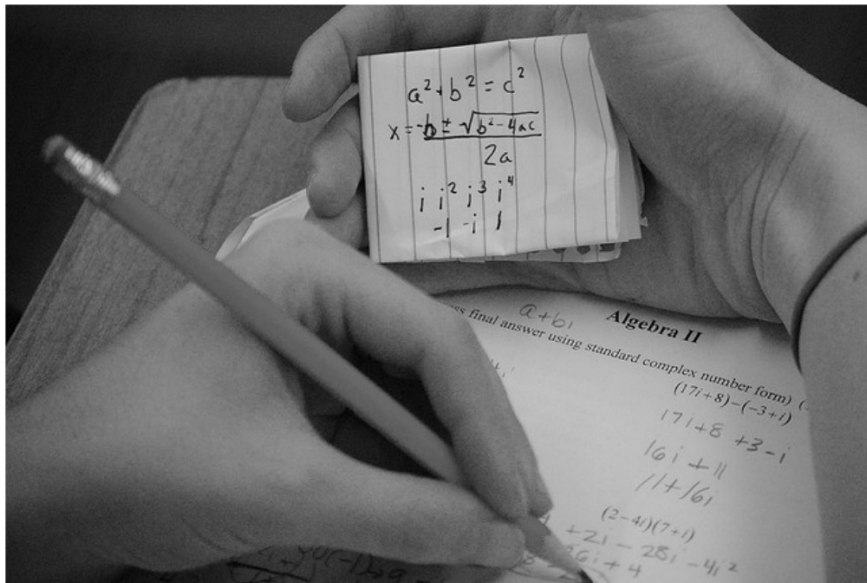 a² + b² = c²
x = -b ± √b²-4ac
2a
i i² i³ i⁴
-1 -i 1
a+bi
Algebra II
final answer using standard complex number form) (
(17i+8)−(−3+i)
17i+8 +3-i
16i + 11
11+16i
(2−4i)(7+i)
+2i - 28i - 4i²
26i + 4